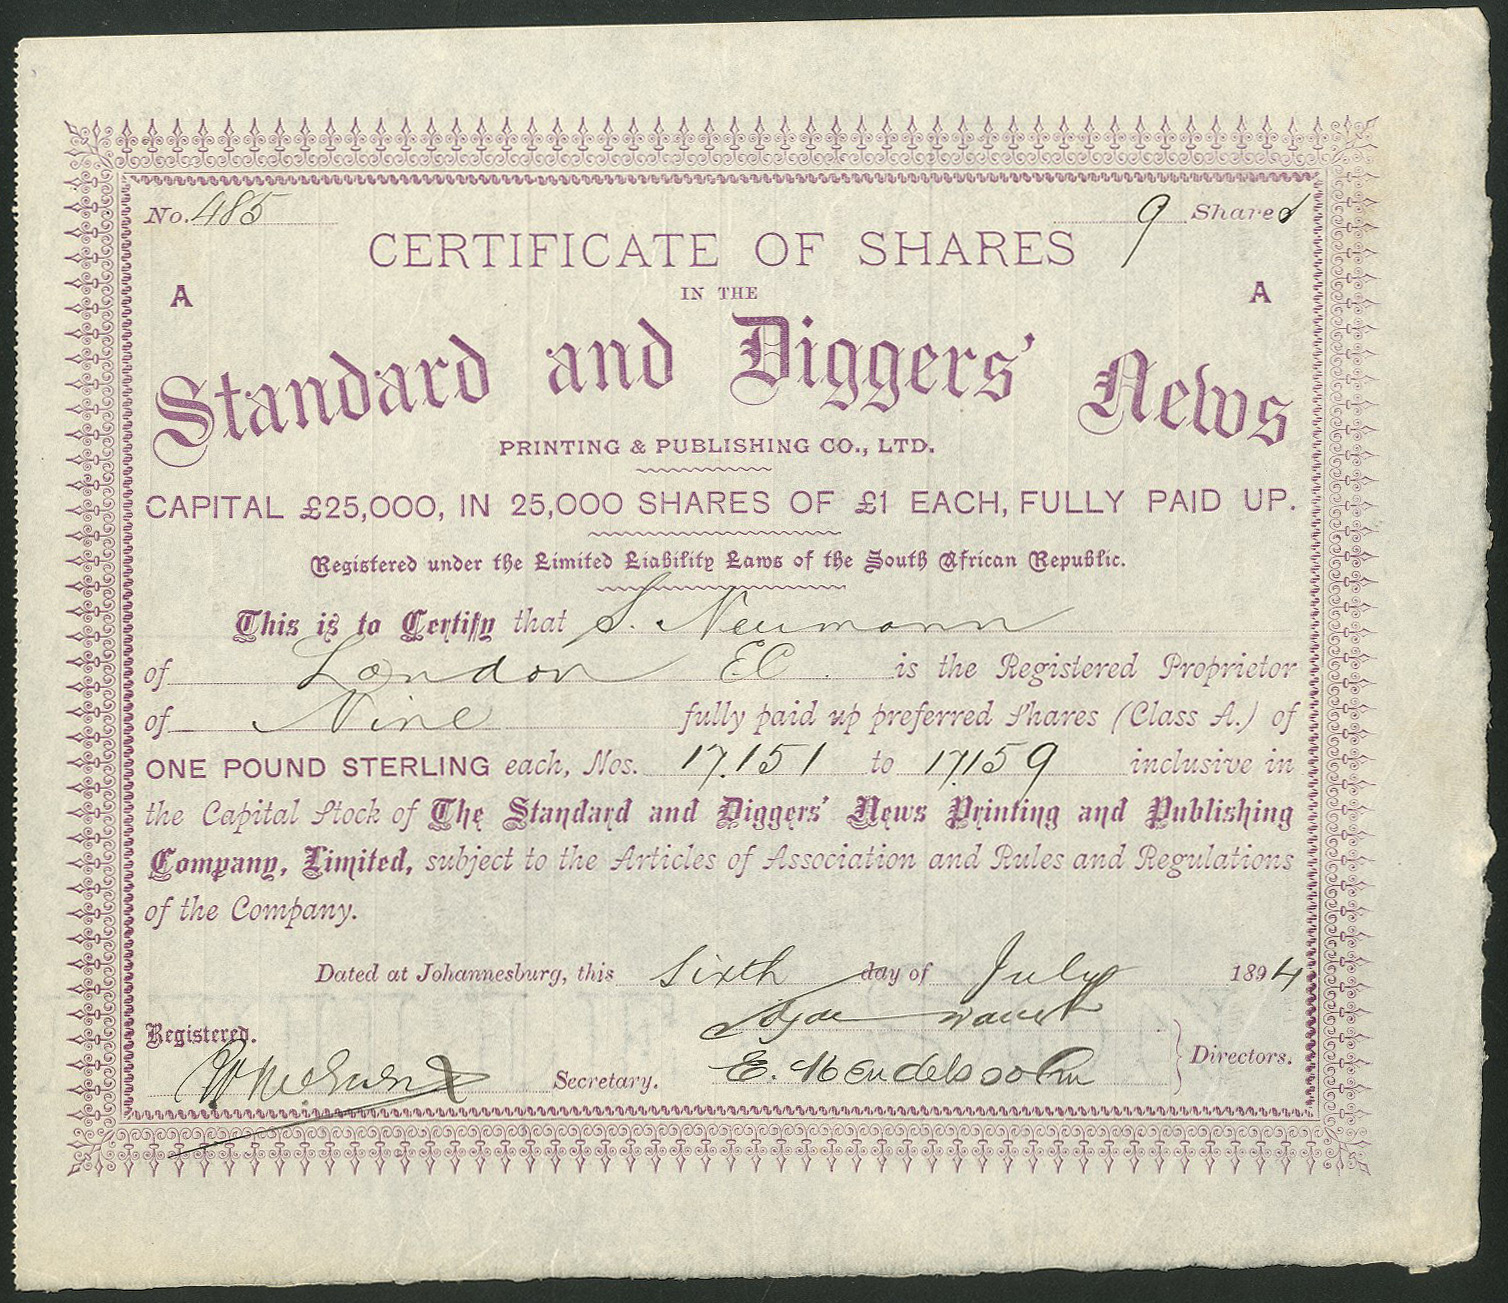 No. 485 9 Shares
CERTIFICATE OF SHARES
A IN THE A
Standard and Diggers' News
PRINTING & PUBLISHING CO., LTD.
CAPITAL £25,000, IN 25,000 SHARES OF £1 EACH, FULLY PAID UP.
Registered under the Limited Liability Laws of the South African Republic.
This is to Certify that S. Neumann
of London EC. is the Registered Proprietor
of Nine fully paid up preferred Shares (Class A.) of
ONE POUND STERLING each, Nos. 17.151 to 17.159 inclusive in
the Capital Stock of The Standard and Diggers' News Printing and Publishing
Company, Limited, subject to the Articles of Association and Rules and Regulations
of the Company.
Dated at Johannesburg, this sixth day of July 1894
Registered.
E. Mendelssohn Directors.
Secretary.